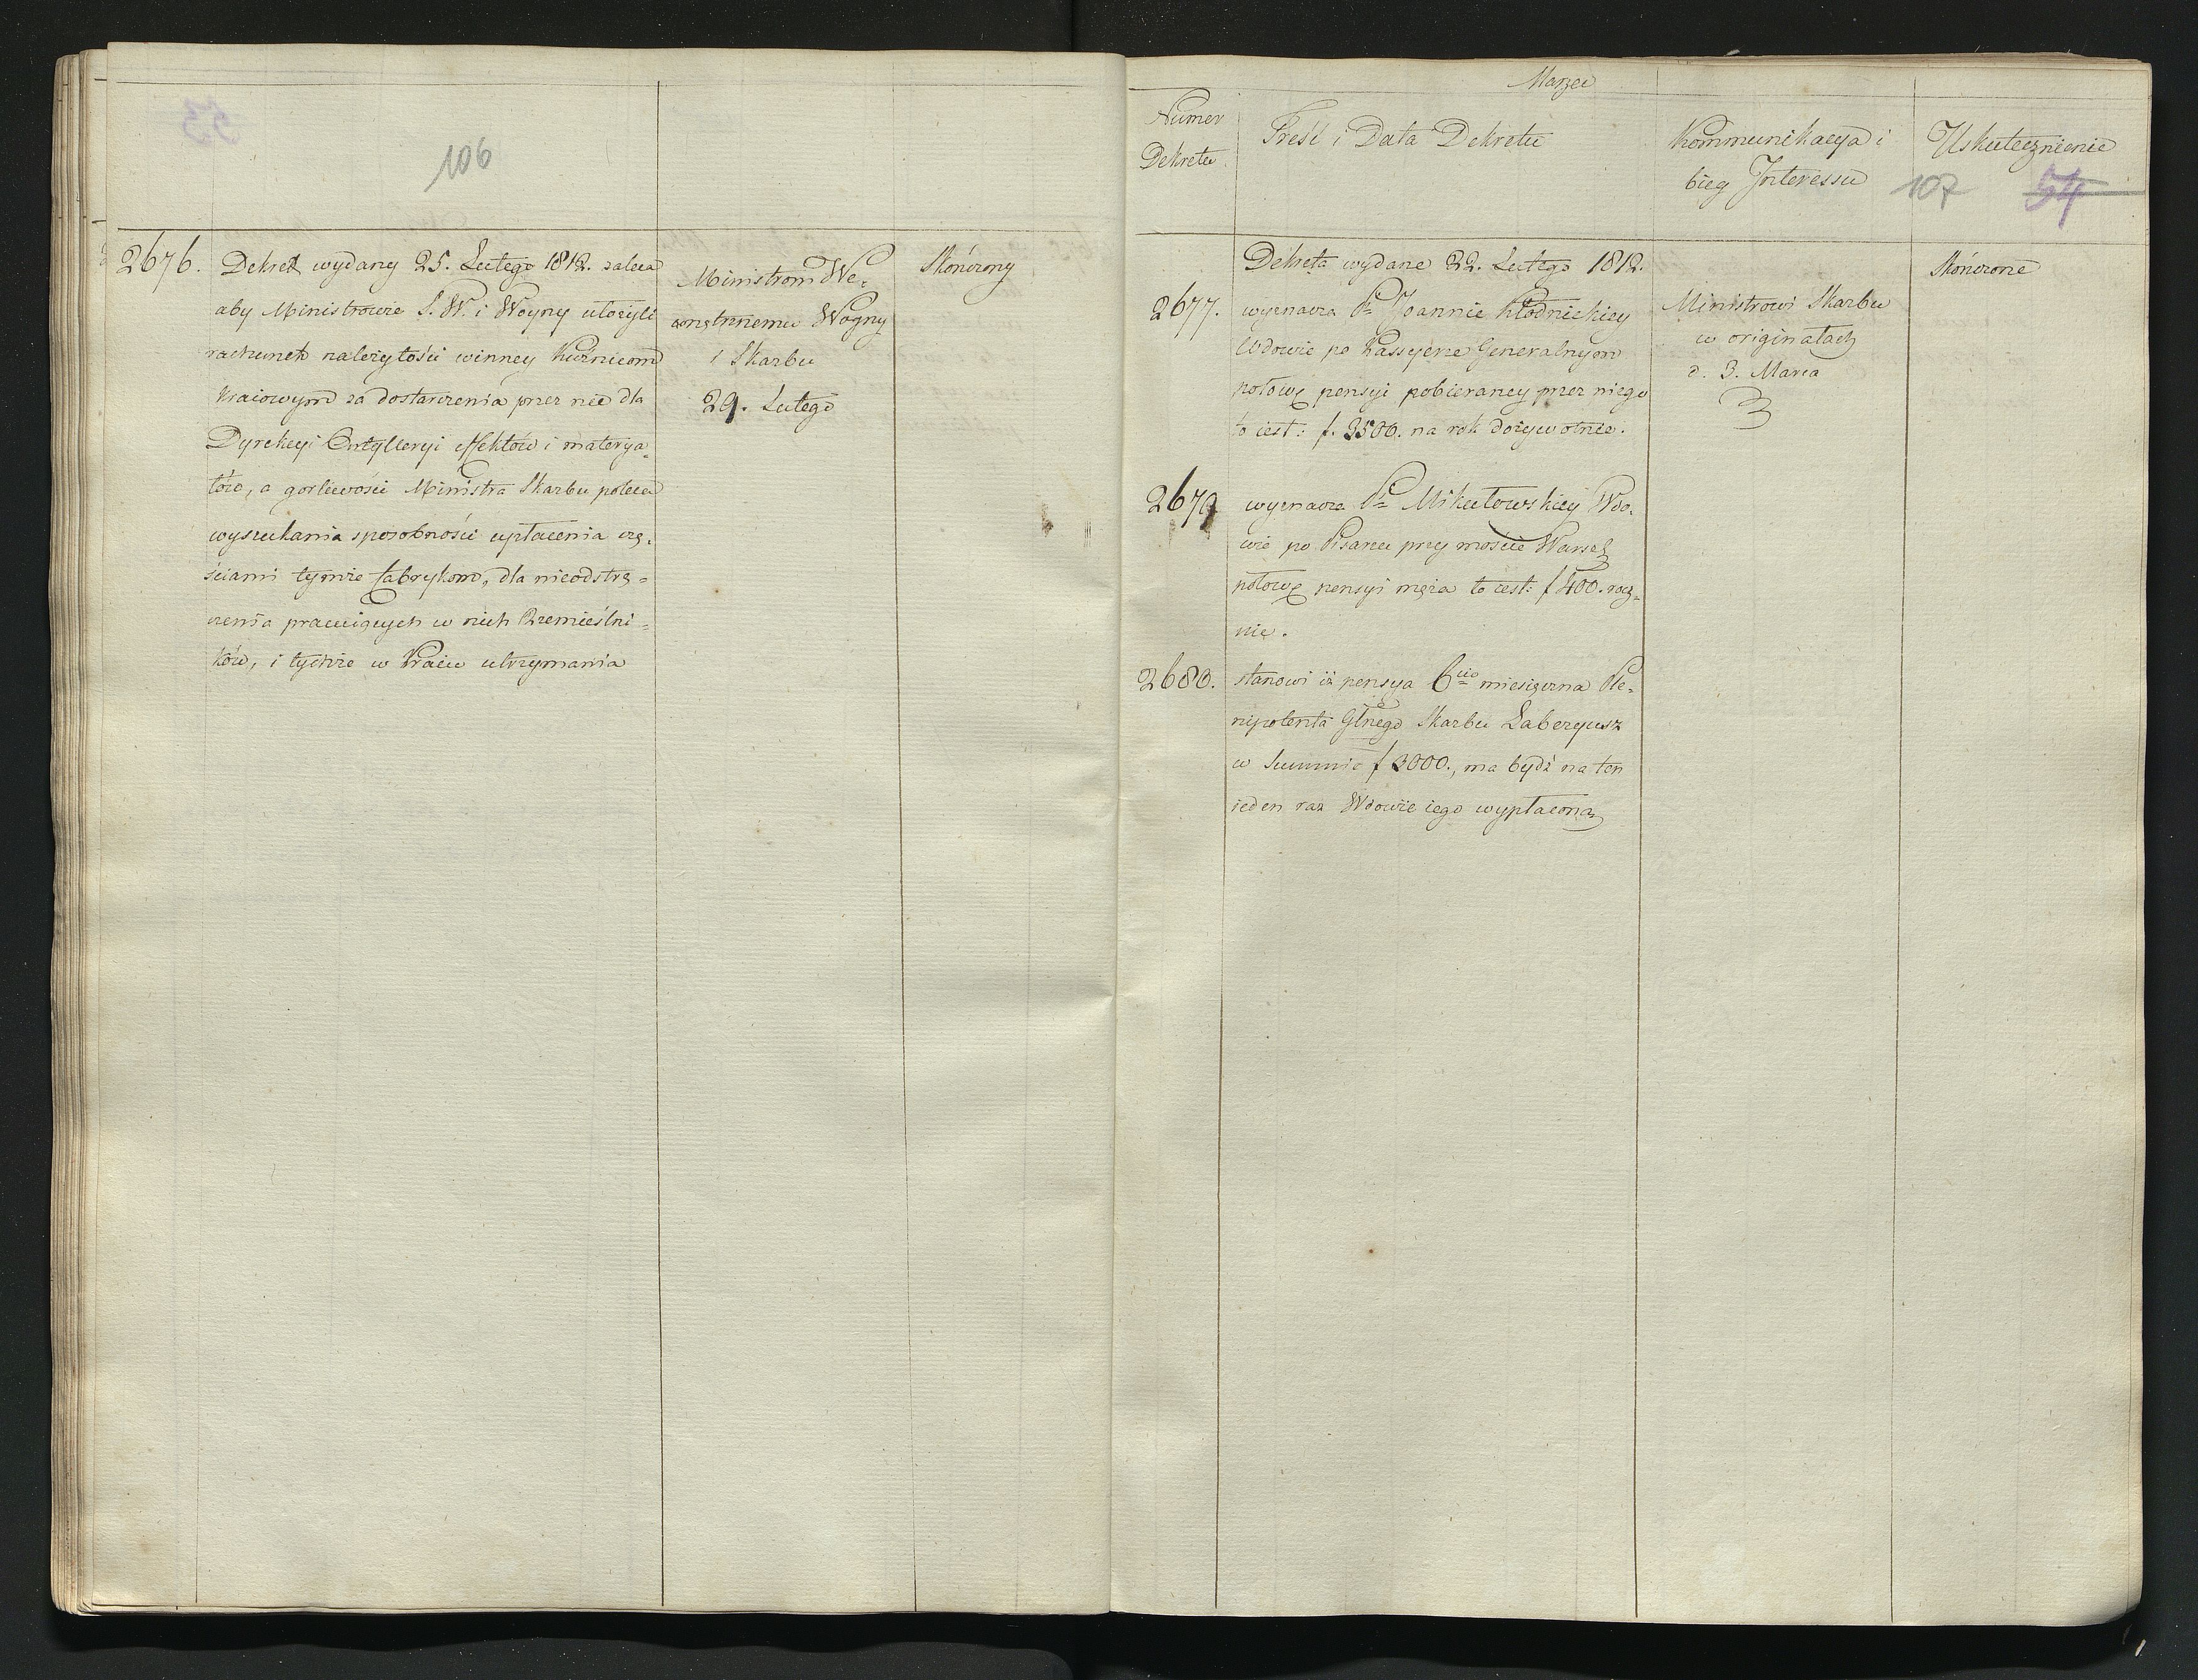 106
2676.
Dekret wydany 25. Lutego 1812. zaleca
aby Ministrowie S. W. i Woyny ułożyli
rachunek należytości winney Kuźnicom
Kraiowym za dostarczenia przez nie dla
Dyrekcyi Artylleryi effektów i materya-
łów, a gorliwości Ministra Skarbu poleca
wyszukania sposobności upłacenia czę-
ściami tymże fabrykom, dla nieodstrę-
czenia pracuiących w nich Rzemieślni-
ków, i tychże w Kraiu utrzymania
Ministrom We-
wnętrznemu Woyny
i Skarbu
29. Lutego
Skończony
Marzec
Numer
Dekretu
Treść i Data Dekretu
Kommunikacya i
bieg Interessu
Uskutecznienie
107
54
Dekreta wydane 22. Lutego 1812.
2677.
wyznacza Pi Joannie Kłodnickiey
Wdowie po Kassyerze Generalnym
połowę pensyi pobieraney przez niego
to iest: f. 3500. na rok dożywotnie.
2679
wyznacza Pi Mikułowskiey Wdo-
wie po Pisarzu przy moście Warsz
połowę pensyi męża to iest: f 400. rocz-
nie.
2680.
stanowi iż pensya 6cio miesięczna Ple-
nipotenta Głnego Skarbu Laberyusz
w Summie f 3000., ma bydź na ten
ieden raz Wdowie iego wypłacona
Ministrowi Skarbu
w originałach
d. 3. Marca
Skończone